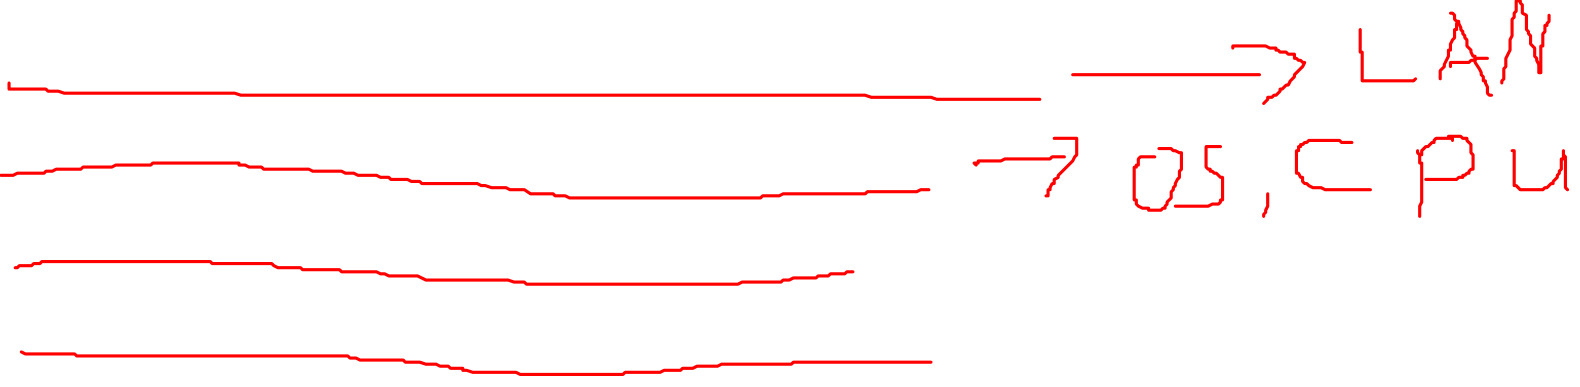 → LAN
→ OS, CPU